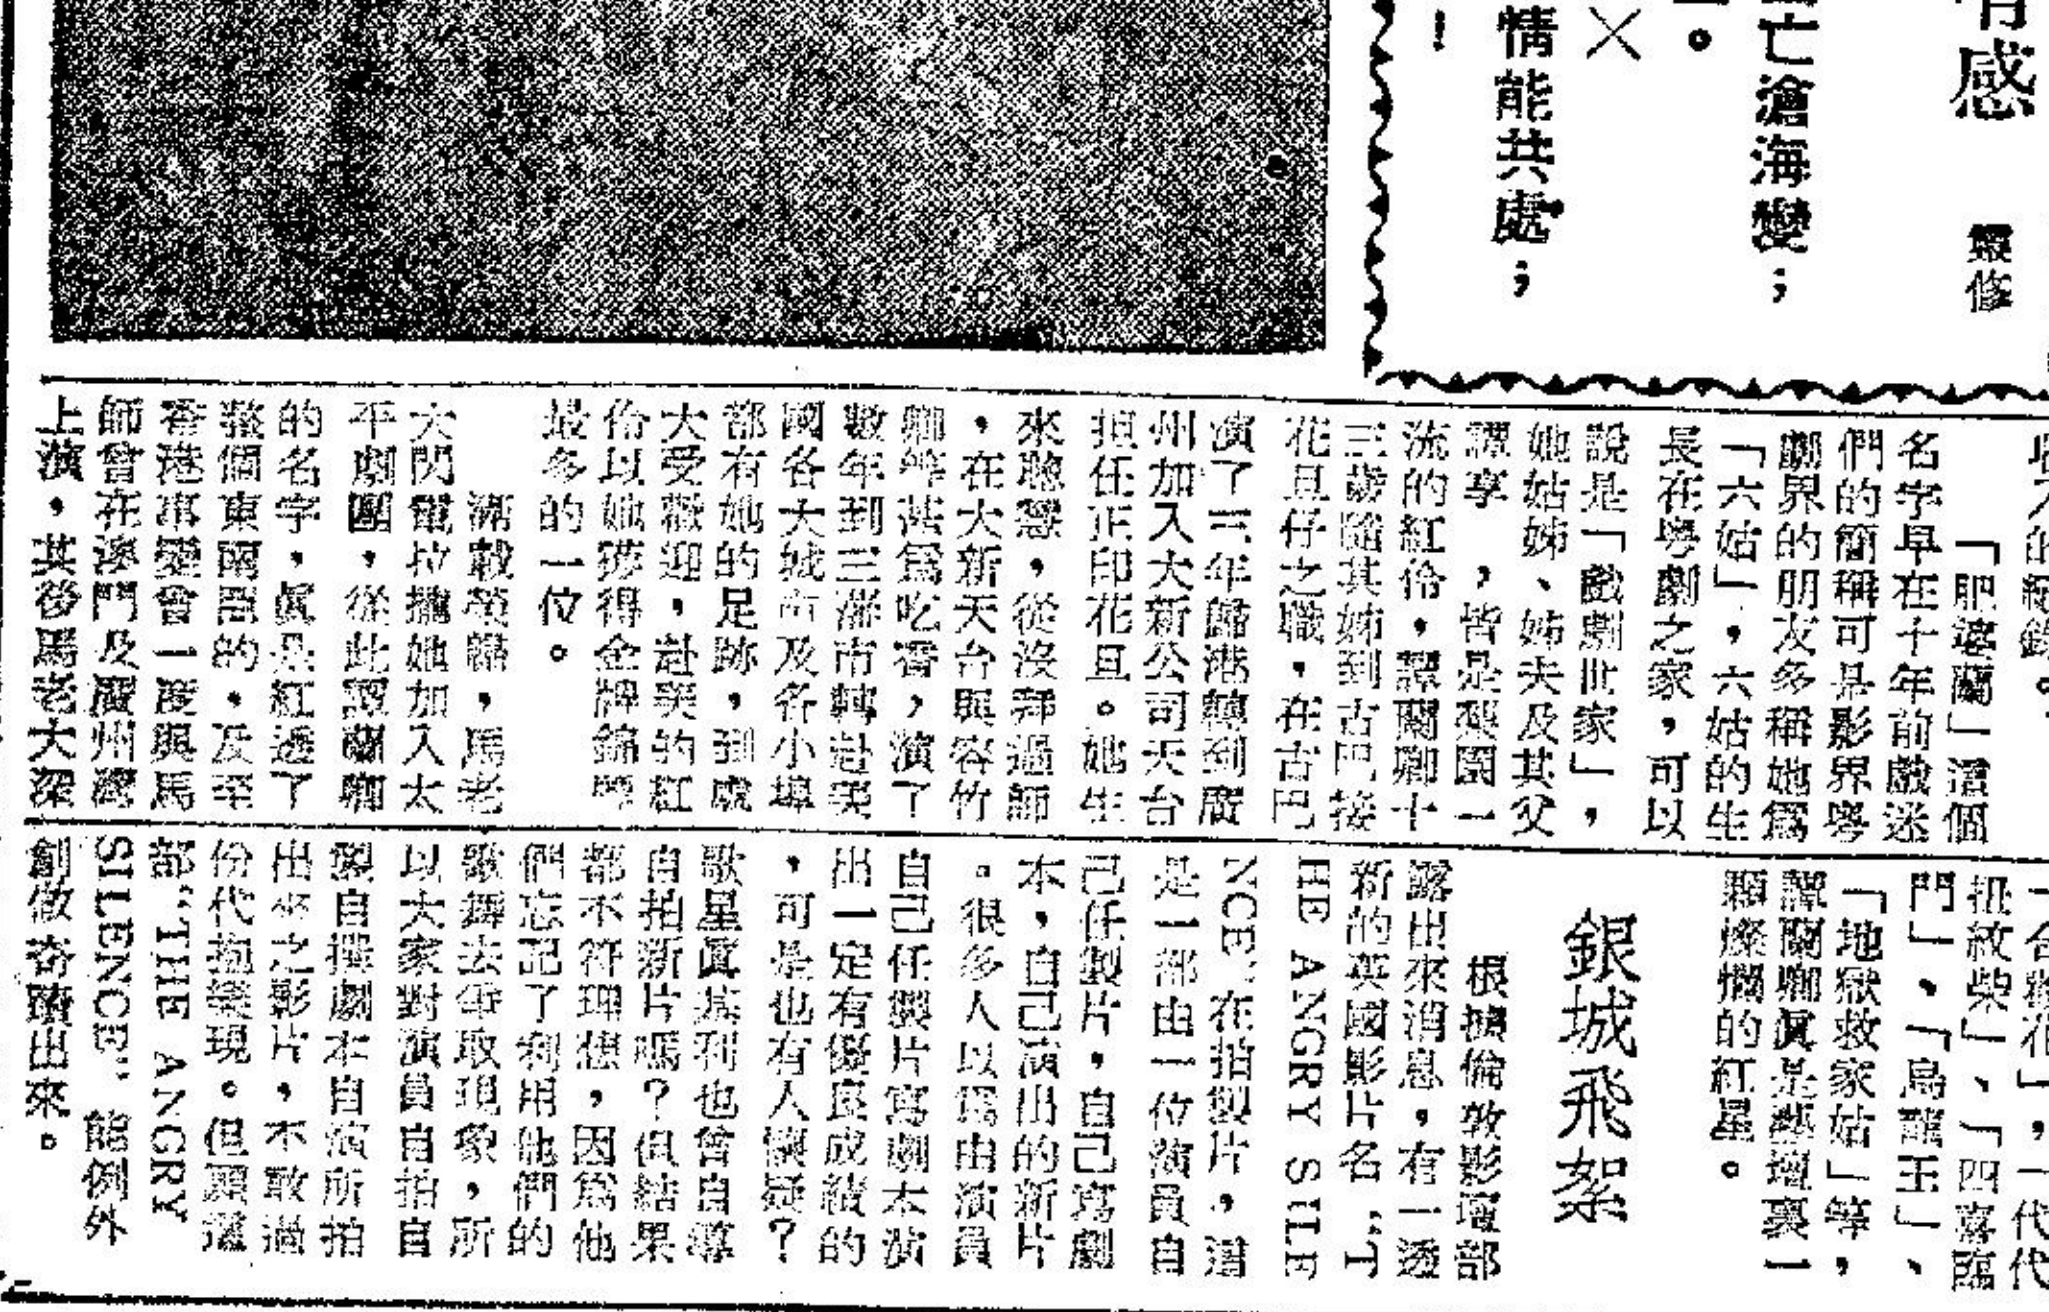 有感
靈修
亡滄海變；
。
×
情能共處；
！
「肥婆蘭」這個
名字早在十年前戲迷
們的簡稱可是影界粵
劇界的朋友多稱她爲
「六姑」，六姑的生
長在粵劇之家，可以
說是「戲劇世家」，
她姑姊、姊夫及其父
譚享，皆是梨園一
流的紅伶，譚蘭卿十
三歲隨其姊到古巴接
花旦仔之職，在古巴
演了三年歸港轉到廣
州加入大新公司天台
担任正印花旦。她生
來聰慧，從沒拜過師
，在大新天台與容竹
卿等甚爲吃香，演了
數年到三藩市轉赴美
國各大城市及各小埠
都有她的足跡，到處
大受歡迎，赴美的紅
伶以她獲得金牌錦標
最多的一位。
滿載榮歸，馬老
大閃電拉攏她加入太
平劇團，從此譚蘭卿
的名字，眞是紅透了
整個東南亞的，及至
香港事變會一度與馬
師曾在澳門及廣州灣
上演，其後馬老大深
一代代
扭紋柴」、「四喜臨
門」，「烏龍王」、
「地獄救家姑」等，
譚蘭卿眞是藝壇裏一
顆燦爛的紅星。
銀城飛絮
根據倫敦影壇部
露出來消息，有一透
新的英國影片名“T
HE ANGRY SILE
NCE”在拍製片，這
是一部由一位演員自
己任製片，自己寫劇
本，自己演出的新片
。很多人以爲由演員
自己任製片寫劇本演
出一定有優良成績的
，可是也有人懷疑？
歌星眞基利也曾自導
自拍新片嗎？但結果
都不符理想，因爲他
們忘記了利用他們的
歌舞去爭取現象，所
以大家對演員自拍自
製自撰劇本自演所拍
出來之影片，不敢過
份代抱樂現。但願這
部“THE ANGRY
SILENCE”能例外
創做奇蹟出來。